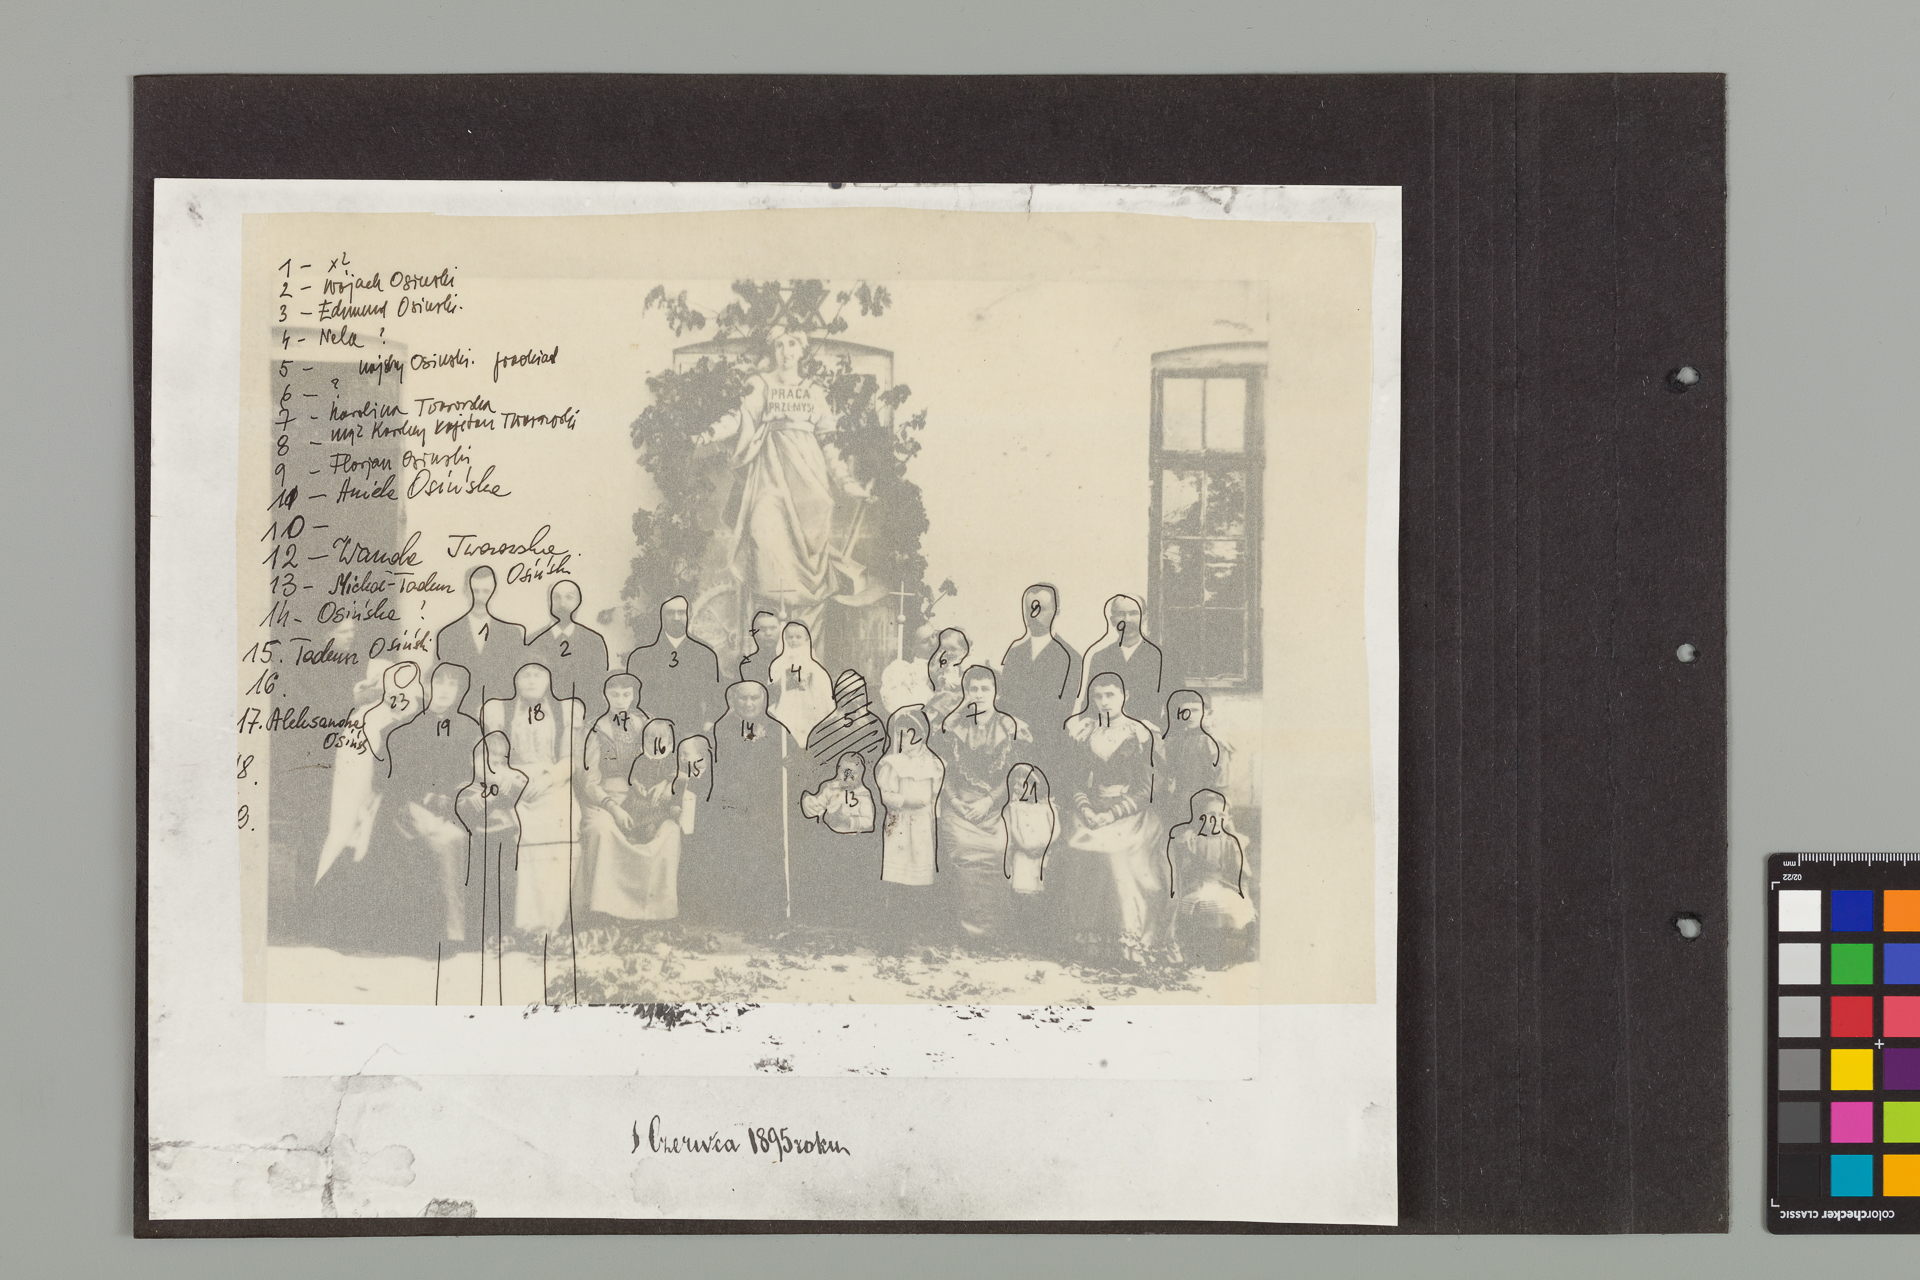 1 – x?
2 – Wojach Osinski
3 – Edmund Osinski.
4 – Nela ?
5 – Osinski.
6 – ?
7 – Karolina Tworowska
8 – mąż Kajetan Tworowski
9 – Florjan Osinski
10 – Aniela Osińska
110 –
12 – Wanda Tworowska.
13 – Michał-Tadeusz Osiński
14 – Osińska ?
15. Tadeusz Osiński
16.
17. Aleksandra
Osińs
18.
9.
PRACA
PRZEMYSŁ
1
2
3
4
5
6
7
8
9
10
11
12
13
14
15
16
17
18
19
20
21
22
23
1 Czerwca 1895 roku
mm
02/22
colorchecker CLASSIC